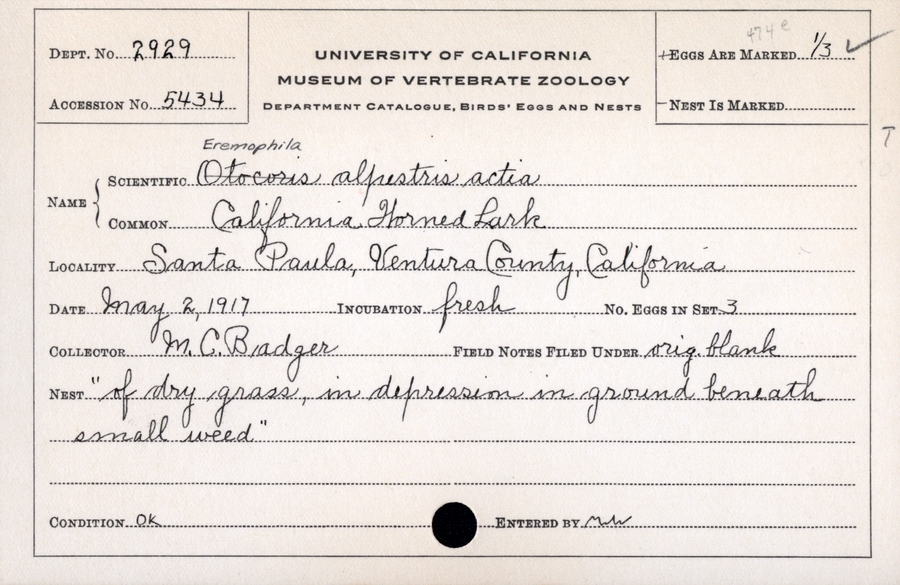 DEPT. NO. 2929
ACCESSION NO. 5434
UNIVERSITY OF CALIFORNIA
MUSEUM OF VERTEBRATE ZOOLOGY
DEPARTMENT CATALOGUE, BIRDS' EGGS AND NESTS
474e
EGGS ARE MARKED 1/3 ✓
NEST IS MARKED
T
Eremophila
NAME { SCIENTIFIC Otocoris alpestris actia
COMMON California Horned Lark
LOCALITY Santa Paula, Ventura County, California
DATE May 2, 1917 INCUBATION fresh NO. EGGS IN SET 3
COLLECTOR M. C. Badger FIELD NOTES FILED UNDER orig. blank
NEST "of dry grass, in depression in ground beneath
small weed"
CONDITION OK ENTERED BY